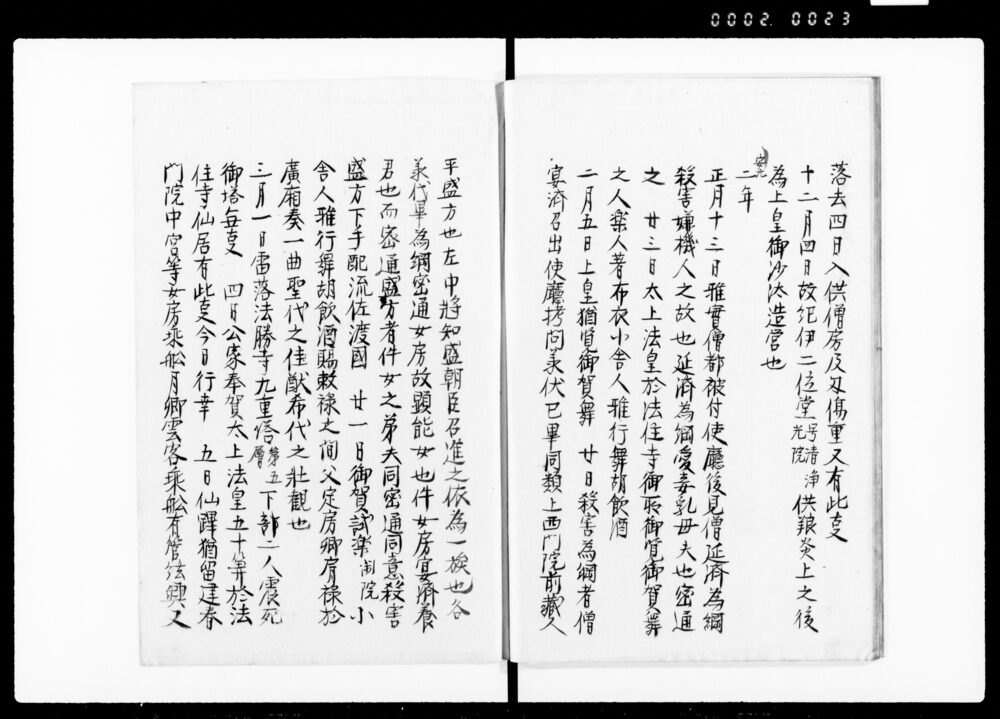 0002. 0023
落去四日入供僧房及刃傷重又有此支
十二月四日故紀伊二位堂号清浄光院供粮炎上之後
為上皇御沙汰造営也
安元
二年
正月十三日雅實僧都被付使廳後見僧延済為綱
殺害嫌機人之故也延済為綱愛妾乳母夫也密通
之 廿三日太上法皇於法住寺御所御覧御賀舞
之人楽人著布衣小舎人雅行舞胡飲酒
二月五日上皇猶覧御賀舞 廿日殺害為綱者僧
宴済召出使廳拷問承伏已畢同類上西門院前蔵人
平盛方也左中將知盛朝臣召進之依為一族也各
承伏畢為綱密通女房故顕能女也件女房宴済養
君也而密通盛方者件女之弟夫同密通同意殺害
盛方下手配流佐渡國 廿一日御賀試楽閑院小
舎人雅行舞胡飲酒賜敕禄之間父定房卿肩禄於
廣廂奏一曲聖代之佳猷希代之壮觀也
三月一日雷落法勝寺九重塔第五層下部二人震死
御塔毎支 四日公家奉賀太上法皇五十筭於法
住寺仙居有此支今日行幸 五日仙蹕猶留建春
門院中宮等女房乗舩月卿雲客乗舩有管弦興又